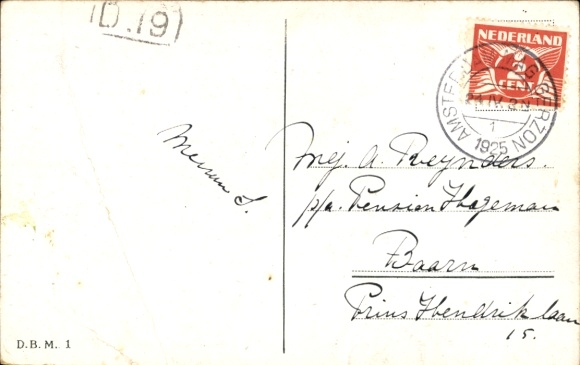 D.19
NEDERLAND
2
CENT
AMSTERDAM
21 IV 3 N
1
1925
S.
Mej. A. Reynders.
p/a. Pension Hageman
Baarn
Prins Hendriklaan
15.
D.B.M. 1